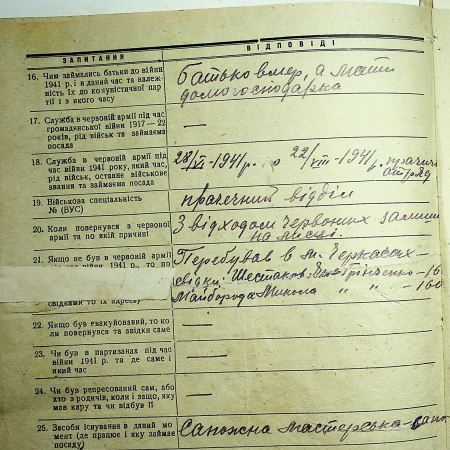 ЗАПИТАННЯ ВІДПОВІДІ
16. Чим займались батьки до війни
1941 р. і в даний час та належ-
ність їх до комуністичної пар-
тії і з якого часу
батько вмер, а мати
домогосподарка
17. Служба в червоній армії під час
громадянської війни 1917—22
років, рід військ та займаєма
посада
—
18. Служба в червоній армії під
час війни 1941 року, який час,
рід військ, останнє військове
звання та займаєма посада
28/VI-1941 р. по 22/VIII-1941 р.
19. Військова спеціальність
№ (ВУС)
прачечний відділ
20. Коли повернувся з червоної
армії та по якій причині
З відходом червоних
на місці.
21. Якщо не був в червоній армії
війни 1941 р., то по
свідками то їх адреса)
Перебував в м. Черкасах —
свідки: Шестаков
Майборода Микола " "
22. Якщо був евакуйований, то ко-
ли повернувся та звідки саме
—
23. Чи був в партизанах під час
війни 1941 р. та де саме і
який час
—
24. Чи був репресований сам, або
хто з родичів, коли і защо, яку
мав кару та чи відбув її
—
25. Засоби існування в даний мо-
мент (де працює і яку займає
посаду)
Сапожна мастерська —